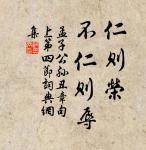 仁則榮
不仁則辱
孟子公孫丑章句
上第四節詞典網
集